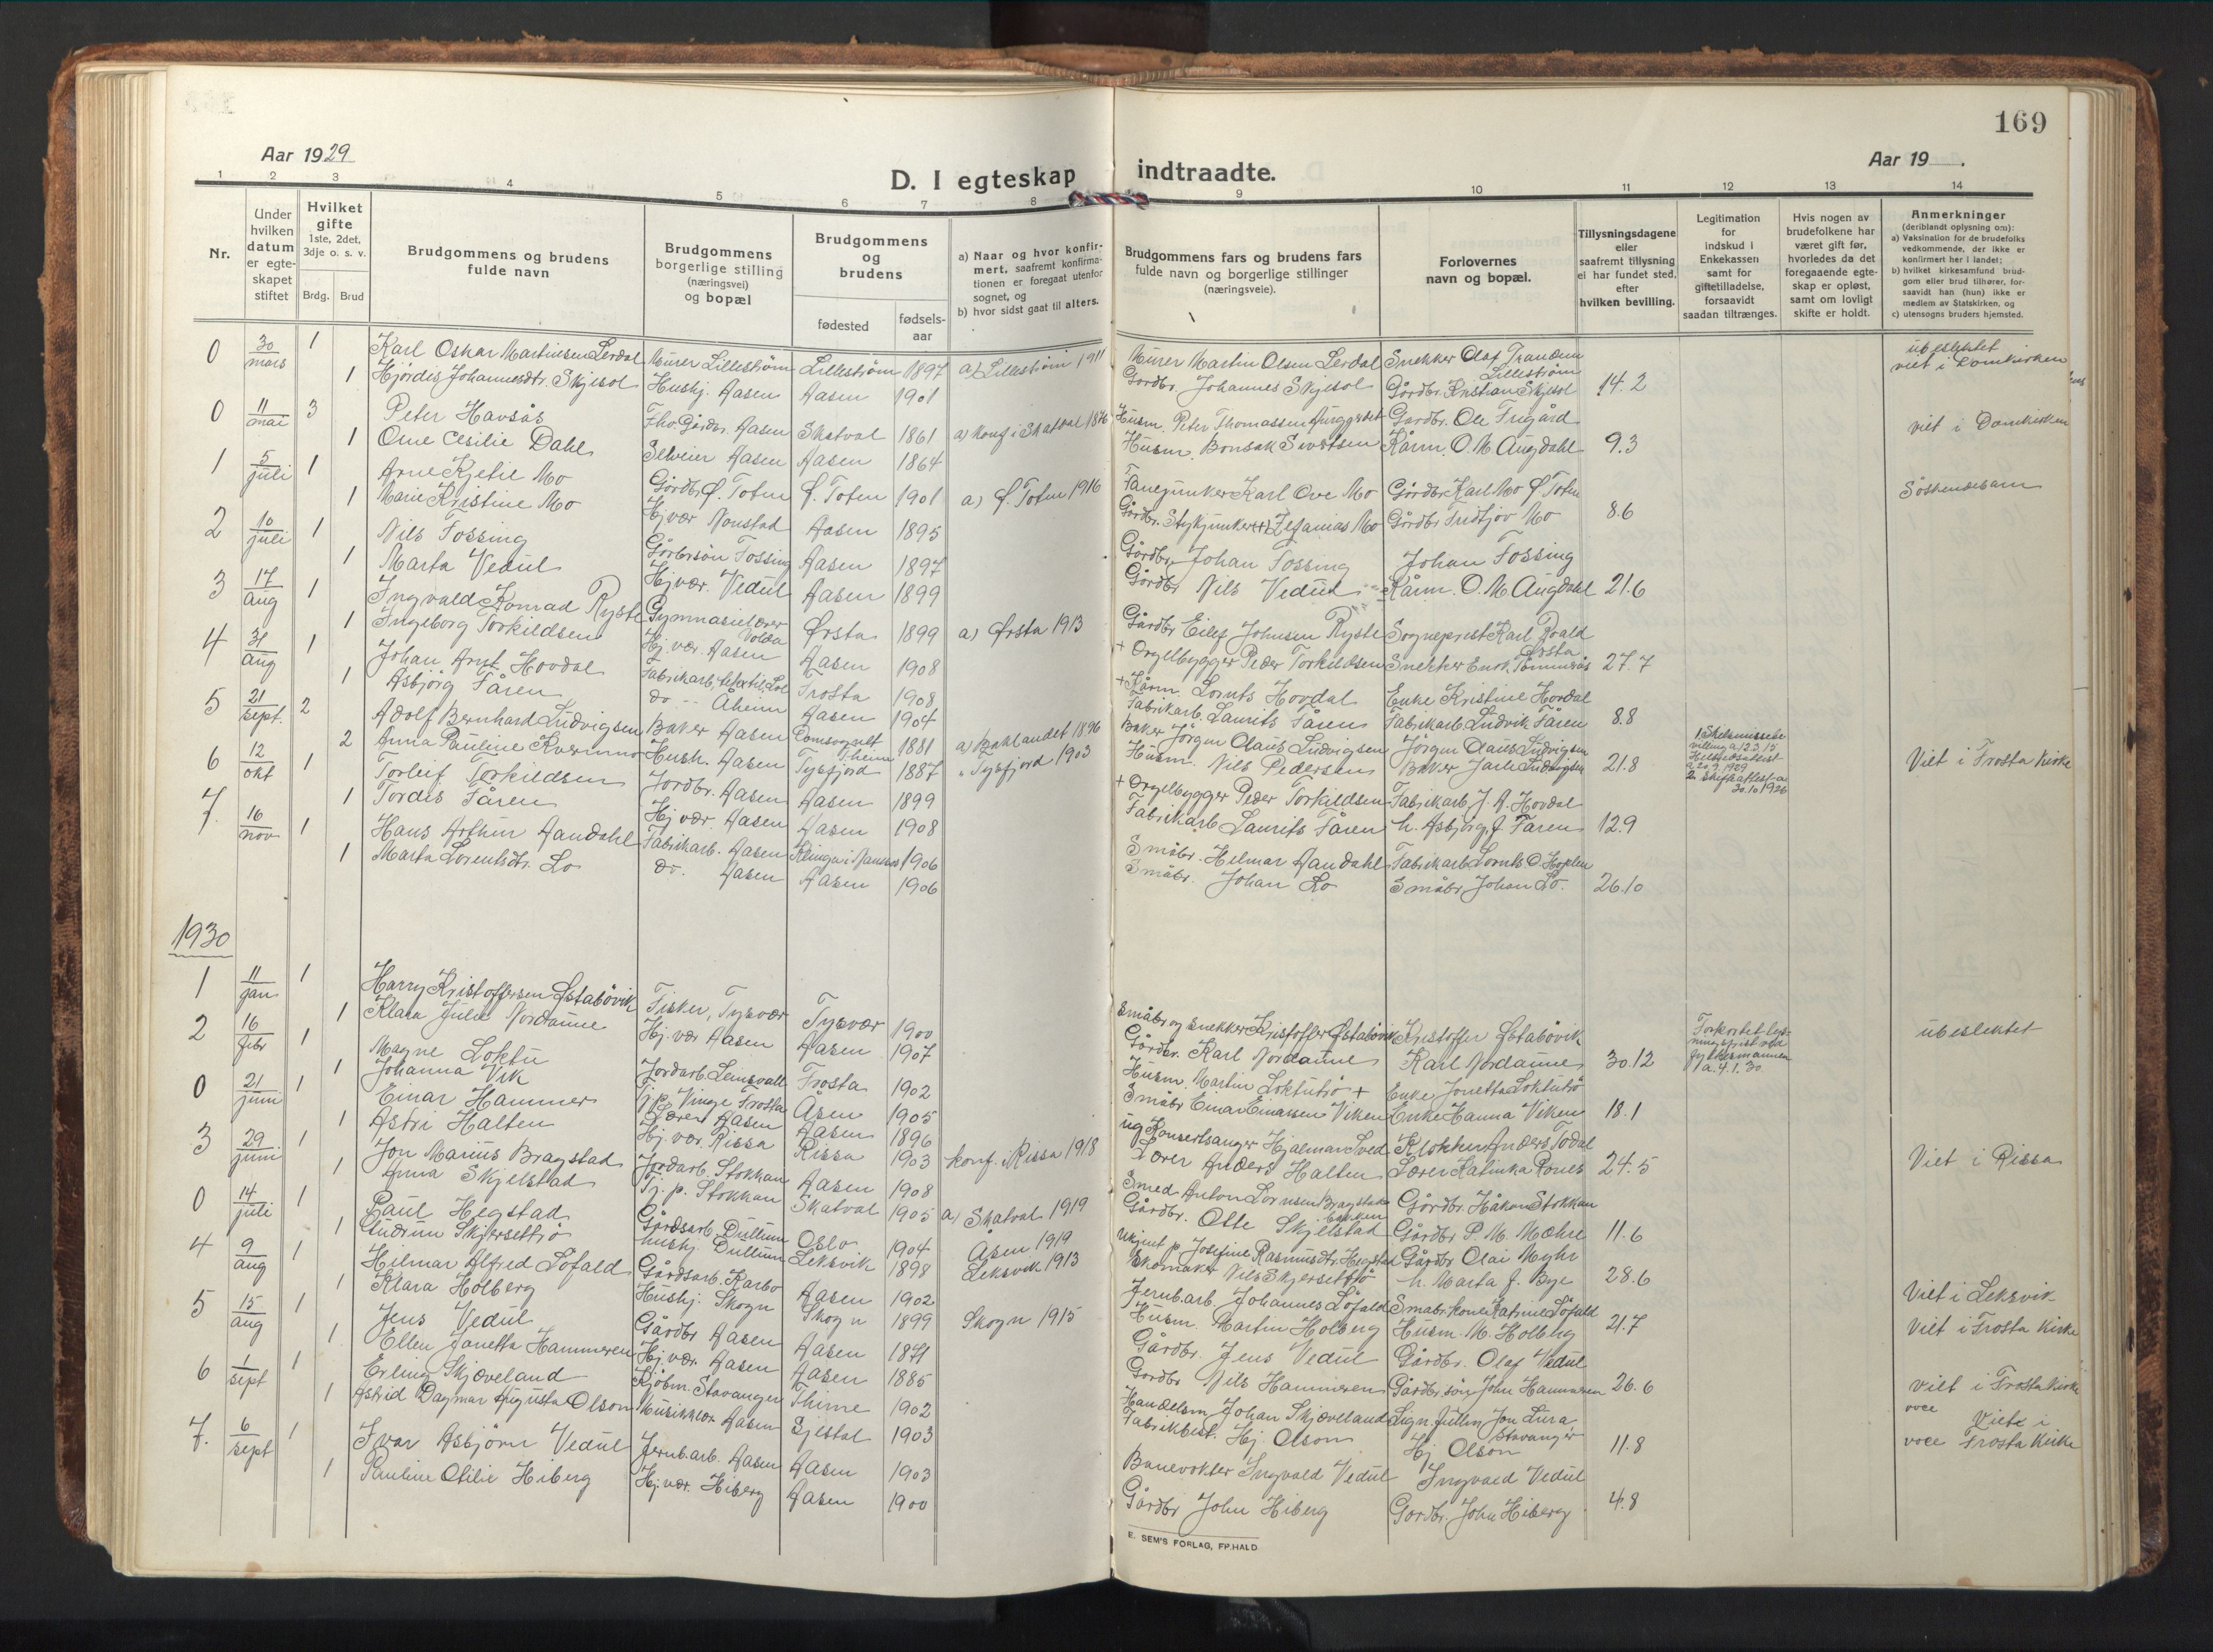 169
Aar 1929
Aar 19 .
D. I egteskap indtraadte.
1 2 3 4 5 6 7 8 9 10 11 12 13 14
Nr.
Under hvilken datum er egteskapet stiftet
Hvilket gifte 1ste, 2det, 3dje o. s. v.
Brdg. Brud
Brudgommens og brudens fulde navn
Brudgommens borgerlige stilling (næringsvei) og bopæl
Brudgommens og brudens
fødested
fødsels-aar
a) Naar og hvor konfir-
mert, saafremt konfirma-
tionen er foregaat utenfor
sognet, og
b) hvor sidst gaat til alters.
Brudgommens fars og brudens fars
fulde navn og borgerlige stillinger
(næringsveie).
Forlovernes
navn og bopæl.
Tillysningsdagene
eller
saafremt tillysning
ei har fundet sted,
efter
hvilken bevilling.
Legitimation
for
indskud i
Enkekassen
samt for
giftetilladelse,
forsaavidt
saadan tiltrænges.
Hvis nogen av
brudefolkene har
været gift før,
hvorledes da det
foregaaende egte-
skap er opløst,
samt om lovligt
skifte er holdt.
Anmerkninger
(deriblandt oplysning om):
a) Vaksination for de brudefolks
vedkommende, der ikke er
konfirmert her i landet;
b) hvilket kirkesamfund brud-
gom eller brud tilhører, for-
saavidt han (hun) ikke er
medlem av Statskirken, og
c) utensogns bruders hjemsted.
0 30/mars 1 Karl Oskar Martinsen Lerdal Murer Lillestrøm Lillestrøm 1897 a) Lillestrøm 1911 Murer Martin Olsen Lerdal Snekker Olaf Trandem Lillestrøm ubeslektet
1 Hjørdis Johannesdtr. Skjesol Hushj. Aasen Aasen 1901 Gårdbr. Johannes Skjesol Gårdbr. Kristian Skjesol 14.2 viet i Domkirken
0 11/mai 3 Peter Havsås Gårdbr. Aasen Skatval 1861 a) konf i Skatval 1876 Husm. Peter Thomassen Gardbr. Ole Frigård
1 Cesilie Dahl Aasen Aasen 1864 Husm. Bonsak Sivertsen Kårm. O. M. Augdahl 9.3 viet i Domkirken
1 5/juli 1 Arne Kjetil Mo Gårdbr. Ø. Toten Ø. Toten 1901 a) Ø. Toten 1916 Fanejunker Karl Ove Mo Gårdbr. Karl Mo Ø Toten Søskendebarn
1 Marie Kristine Mo Hj. vær Nonstad Aasen 1895 Gårdbr. Stykjunker Zefanias Mo Gårdbr Fridtjov Mo 8.6
2 10/juli 1 Nils Fossing Gårbrsøn Fossing Aasen 1897 Gårdbr. Johan Fossing Johan Fossing
1 Marta Vedul Hj. vær. Vedul Aasen 1899 Gårdbr Nils Vedul Kårm. O. M. Augdahl 21.6
3 17/aug 1 Ingvald Konrad Ryste Gymnasielærer Volda Ørsta 1899 a) Ørsta 1913 Gårdbr Eilef Johnsen Ryste Sogneprest Karl Roald Ørsta
1 Ingeborg Torkildsen Hj. vær. Aasen Aasen 1908 + Orgelbygger Peder Torkildsen Snekker 27.7
4 31/aug 1 Johan Arnt Hovdal Fabrikarb. Frosta 1908 + Kårm. Lornts Hovdal Enke Kristine Hovdal
1 Asbjörg Fåren do Aasen 1904 Fabrikarb. Laurits Fåren Fabrikarb Ludvik Fåren 8.8
5 21/sept. 2 Adolf Bernhard Ludvigsen Baker Aasen Domsognet Thjem 1881 a) Baklandet 1896 Baker Jörgen Claus Ludvigsen Jörgen Claus Ludvigsen
2 Anna Pauline Kvernmo Hush. Aasen Tysfjord 1887 " Tysfjord 1903 Husm. Nils Pedersen Baker Jarle Ludvigsen 21.8 Viet i Frosta Kirke
6 12/okt 1 Torleif Torkildsen Jordbr. Aasen Aasen 1899 + Orgelbygger Peder Torkildsen Fabrikarb. J. A. Hovdal
1 Tordis Fåren Hj. vær. Aasen Aasen 1908 Fabrikarb Laurits Fåren h. Asbjørg f. Faren 12.9
7. 16/nov 1 Hans Arthur Aandahl Fabrikarb. Aasen Klinga i Namsos 1906 Småbr. Helmar Aandahl Fabrikarb Lornts O. Hoplen
1 Marta Lorentsdtr. Lo do. Aasen Aasen 1906 Småbr. Johan Lo Småbr Johan Lo. 26.10
1930
1 11/jan 1 Harry Kristoffersen Østabövik Fisker, Tysvær Tysvær 1900 Småbr og snekker Kristoffer Østabövik Kristoffer Østabövik ubeslektet
1 Klara Julie Nordaune Hj. vær Aasen Aasen 1907 Gårdbr. Karl Nordaune Karl Nordaune 30.12 Forkortet lysningsfrist ved fylkesmannen a. 4.1.30
2 16/febr 1 Magne Loktu Jordarb. Frosta 1902 Husm. Martin Loktutrø + Enke Jonetta Loktutrø
1 Johanna Vik Tj. p. Vinge Frosta Åsen 1905 Småbr Einar Einarsen Viken Enke Hanna Viken 18.1
0 21/juni 1 Einar Hammer Lærer Aasen Aasen 1896 ug Konsertsanger Hjalmar Klokker Anders Todal
1 Astri Halten Hj. vær. Rissa Rissa 1903 konf. i Rissa 1918 Lærer Anders Halten Lærer Katinka Rones 24.5 Viet i Rissa
3 29/juni 1 Jon Marius Bragstad Jordarb. Stokkan Aasen 1908 Smed Anton Lornsen Bragstad Gårdbr. Håkon Stokkan
1 Anna Skjelstad Tj. p. Stokkan Skatval 1905 a) Skatval 1919 Gårdbr. Otte Skjelstad Gårdbr P. M. Mæhre 11.6
0 14/juli 1 Paul Hegstad Gårdsarb. Dullum Oslo 1904 Åsen 1919 p. Josefine Rasmusdtr. Hegstad Gårdbr Olai Myhr
1 Gudrun Skjersettrø hushj. Dullum Leksvik 1898 Leksvik 1913 Skomaker Nils Skjersettrø h. Marta f. Bye 28.6 Viet i Leksvik
4 9/aug 1 Hilmar Alfred Löfald Gårdsarb. Karbo Aasen 1902 Jernb.arb. Johannes Löfald Småbr. kone Katrine Löfald
1 Klara Holberg Hushj. Skogn Skogn 1899 Skogn 1915 Husm. Martin Holberg Husm. M. Holberg 21.7 Viet i Frosta Kirke
5 15/aug 1 Jens Vedul Gårdbr Aasen Aasen 1871 Gårdbr. Jens Vedul Gårdbr. Olaf Vedul
1 Ellen Janetta Hammeren Hj. vær. Aasen Aasen 1885 Gårdbr Nils Hammeren Gårdbr. søn John Hammeren 26.6 viet i Frosta Kirke
6 1/sept 1 Erling Skjæveland Kjöbm. Stavanger Thime 1902 Handelsm Johan Skjæveland Jon Lura Stavanger
1 Astrid Dagmar Augusta Olson Musikklær. Aasen 1903 Fabrikbest. Hj. Olson Hj Olson 11.8 Viet i Frosta Kirke
7. 6/sept 1 Ivar Asbjørn Vedul Jernb.arb. Aasen Aasen 1903 Banevokter Ingvald Vedul Ingvald Vedul
1 Pauline Otilie Hiberg Hj. vær. Hiberg Aasen 1900 Gårdbr John Hiberg Gårdbr. John Hiberg 4.8
E. SEM'S FORLAG, FR.HALD